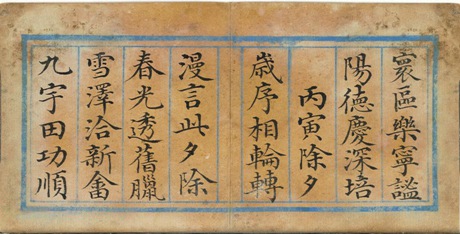 寰區樂寧謐
陽德慶深培
丙寅除夕
歲序相輪轉
漫言此夕除
春光透舊臘
雪澤洽新畬
九宇田功順